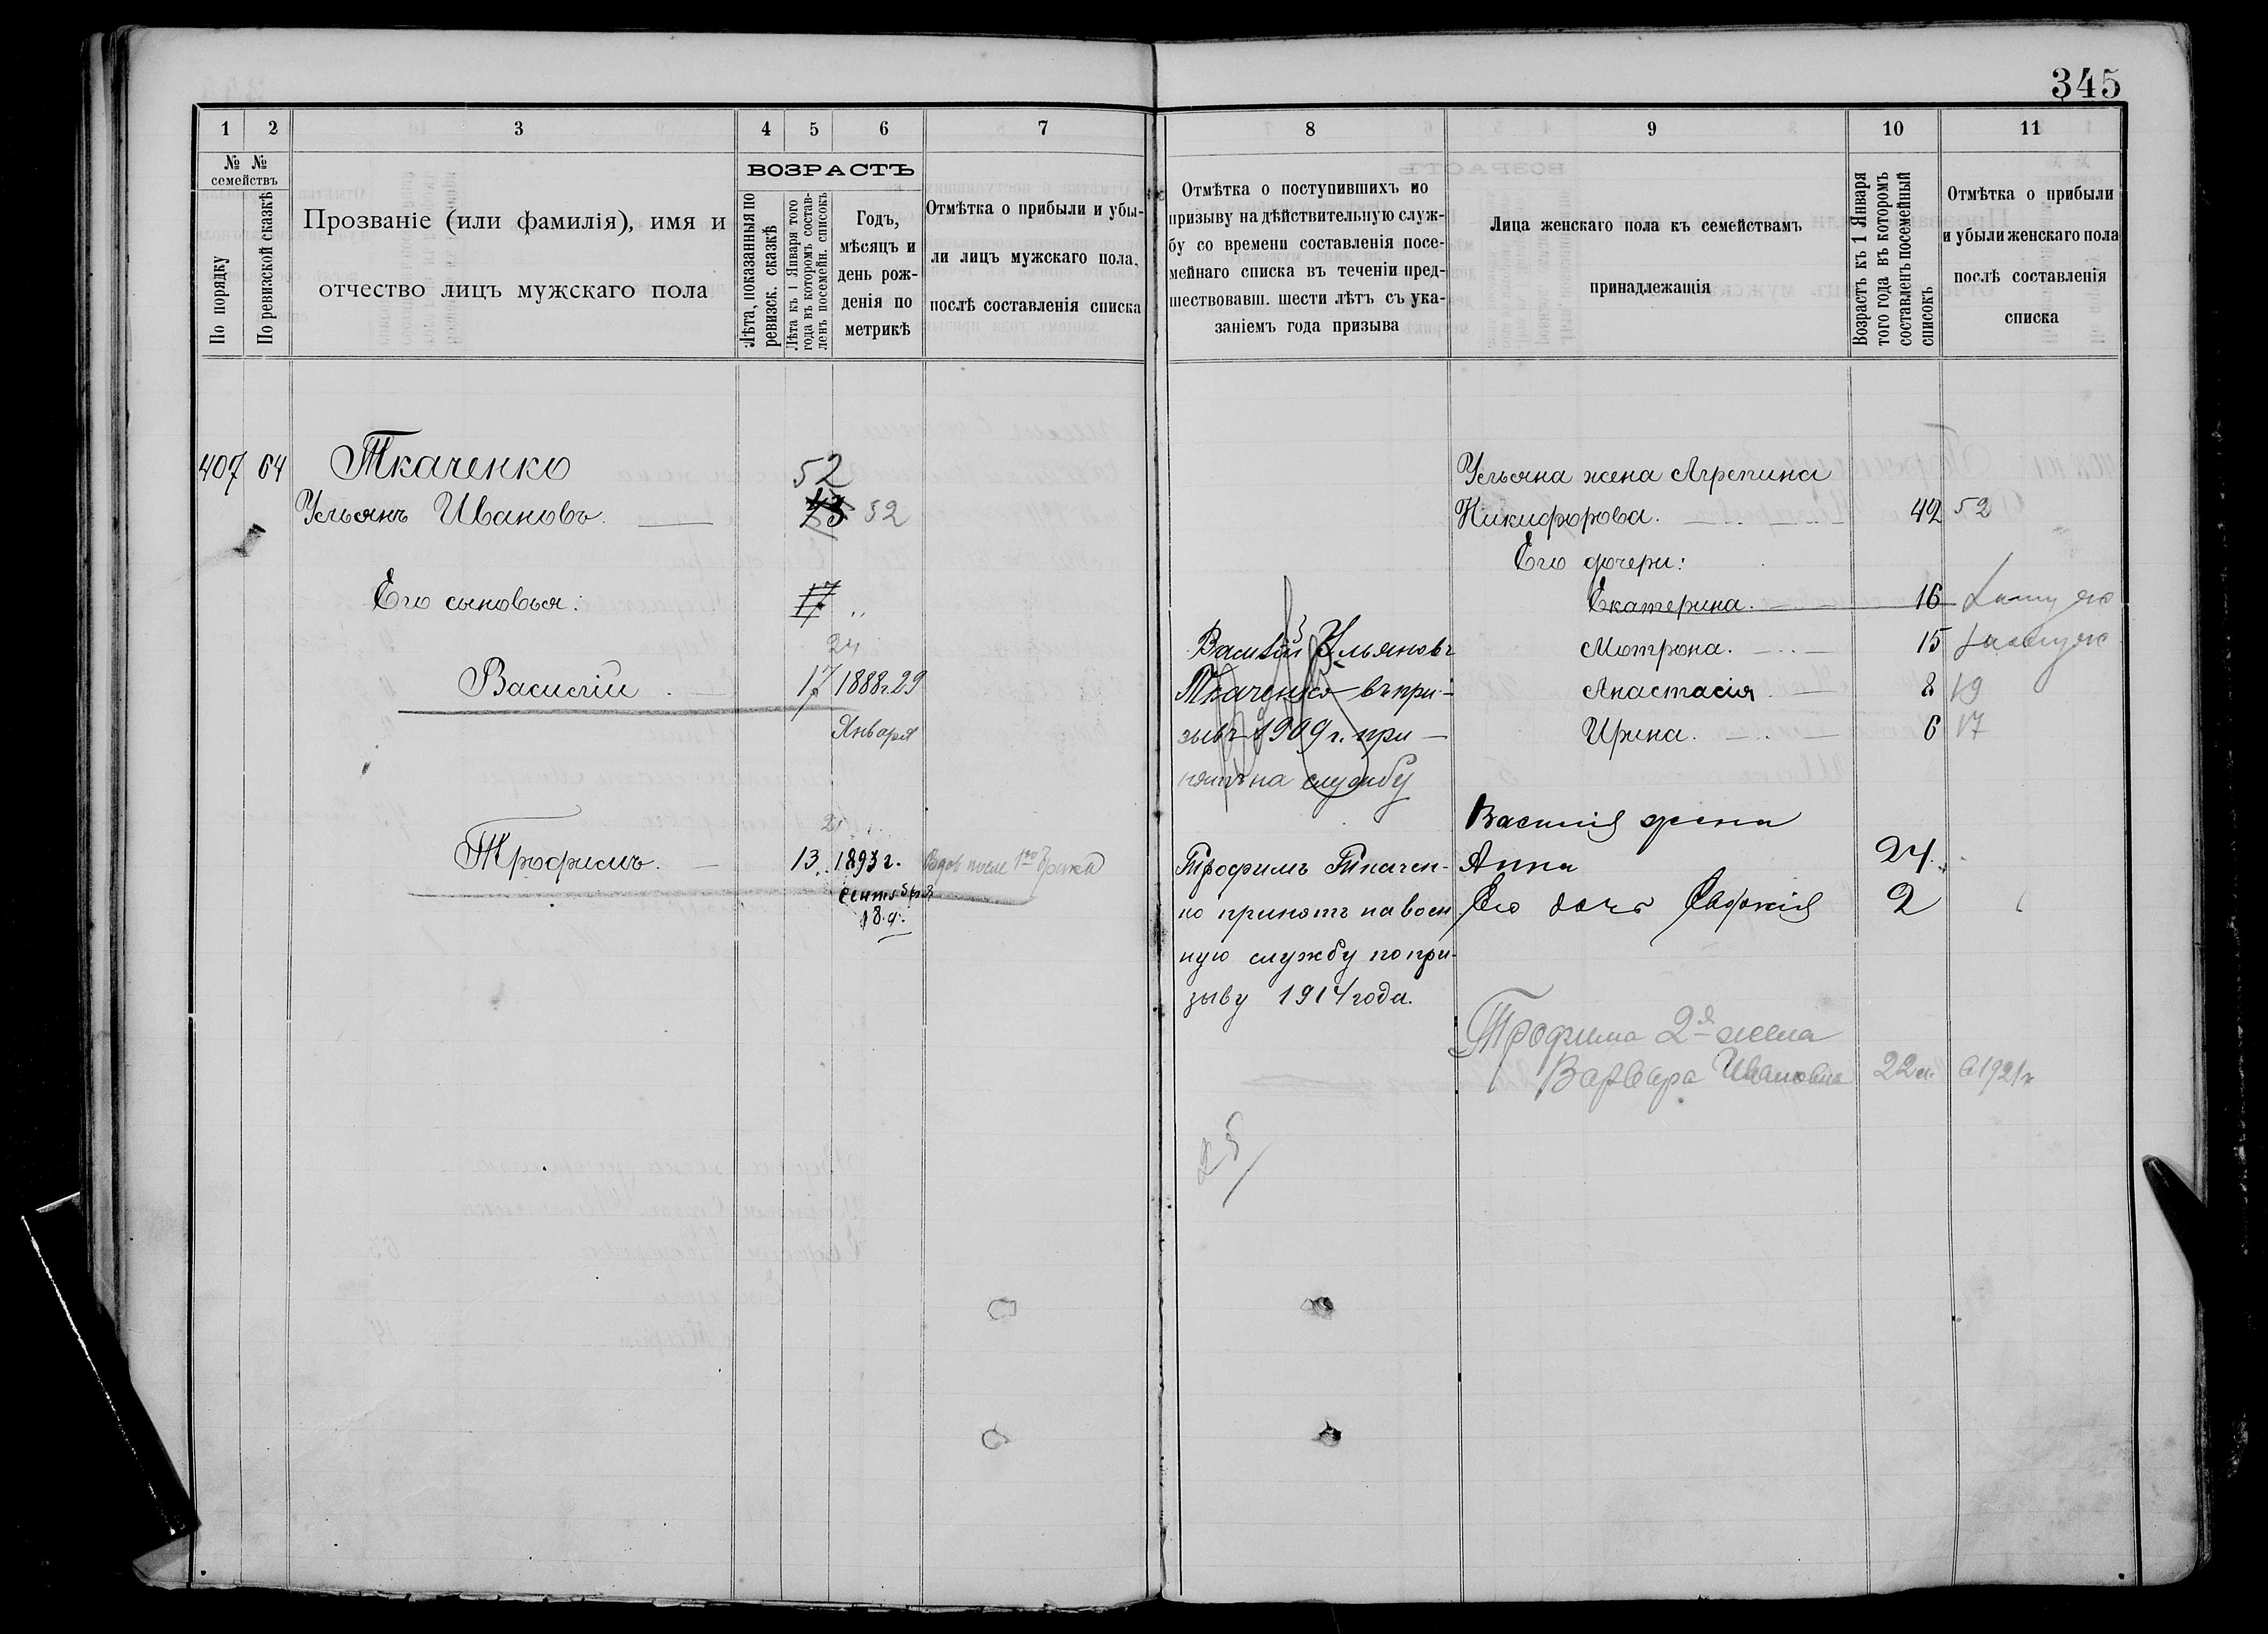 345
1 2 3 4 5 6 7
№ № семействъ
По порядку
По ревизской сказкѣ
Прозваніе (или фамилія), имя и
отчество лицъ мужскаго пола
ВОЗРАСТЪ
Лѣта, показанныя по
ревизск. сказкѣ
Лѣта къ 1 Января того
года въ которомъ состав-
ленъ посемейн. списокъ
Годъ,
мѣсяцъ и
день рож-
денія по
метрикѣ
Отмѣтка о прибыли и убы-
ли лицъ мужскаго пола,
послѣ составленія списка
407 64 Ткаченко 52
Ульянъ Ивановъ. 43 52
Его сыновья: 17
24
Василій 17 1888 г. 29
Января
21
Трофимъ. 13 1893 г. Вдов после 1го брака
Сентября
18 д.
8 9 10 11
Отмѣтка о поступившихъ по
призыву на дѣйствительную служ-
бу со времени составленія посе-
мейнаго списка въ теченіи пред-
шествовавш. шести лѣтъ съ ука-
заніемъ года призыва
Лица женскаго пола къ семействамъ
принадлежащія
Возрастъ къ 1 Января
того года въ которомъ
составленъ посемейный
списокъ
Отмѣтка о прибыли
и убыли женскаго пола
послѣ составленія
списка
Ульяна жена Агрепина
Никифорова. 42 52
Его дочери:
Екатерина. 16 Замуж
Мотрона. 15 Замуж
Анастасія 8 19
Ирина. 6 17
Василій Ульяновъ
Ткаченко въ при-
зывъ 1909 г. при-
нятъ на службу
Василія жена
Анна 24
Его дочь Евфимія 2
Трофимъ Ткачен-
ко принятъ на воен
ную службу по при-
зыву 1914 года.
Трофима 2я жена
Варвара Ивановна 22 л. в 1921 г
25